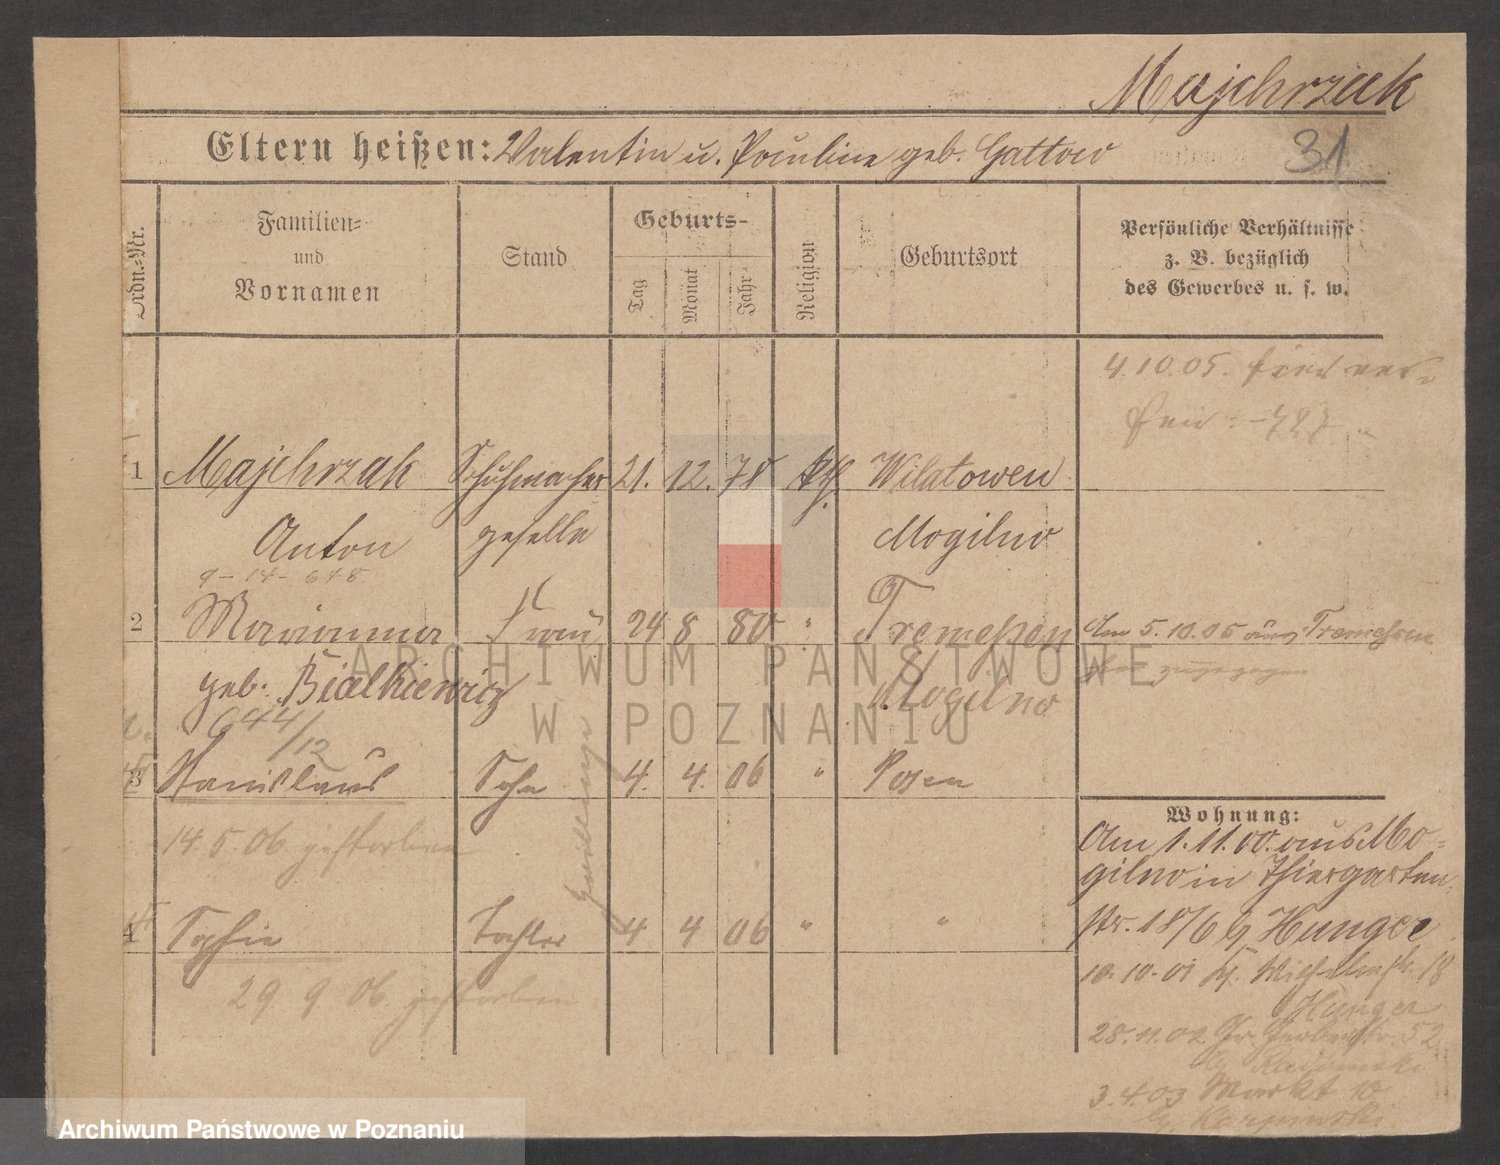 Majchrzak
31
Eltern heißen: Valentin u. Pauline geb. Gattow
Ordn.-Nr.
Familien-
und
Vornamen
Stand
Geburts-
Tag
Monat
Jahr
Religion
Geburtsort
Persönliche Verhältnisse
z. B. bezüglich
des Gewerbes u. s. w.
4.10.05.
1 Majchrzak Schuhmacher 21. 12. 78 kth. Wilatowen
Anton geselle Mogilno
9-14-648
2 Marianna Frau 24 8 80 " Tremessen Am 5.10.05 aus Tremessen
geb. Bialkiewicz Mogilno zugezogen
644/12
3 Stanislaus Sohn 4. 4. 06 " Posen
14.5.06. gestorben
Zwillinge
4 Sophie Tochter 4 4 06 " "
29 9 06. gestorben
Wohnung:
Am 1.11.00. aus Mo-
gilno in Thiergarten-
str. 18/6 b/ Hunger
10.10.01 Wilhelmstr. 18
Hunger
28.11.02 Gr. Gerberstr. 52
3.4.03 Markt 10
b/ Karpinski
ARCHIWUM PAŃSTWOWE
W POZNANIU
Archiwum Państwowe w Poznaniu